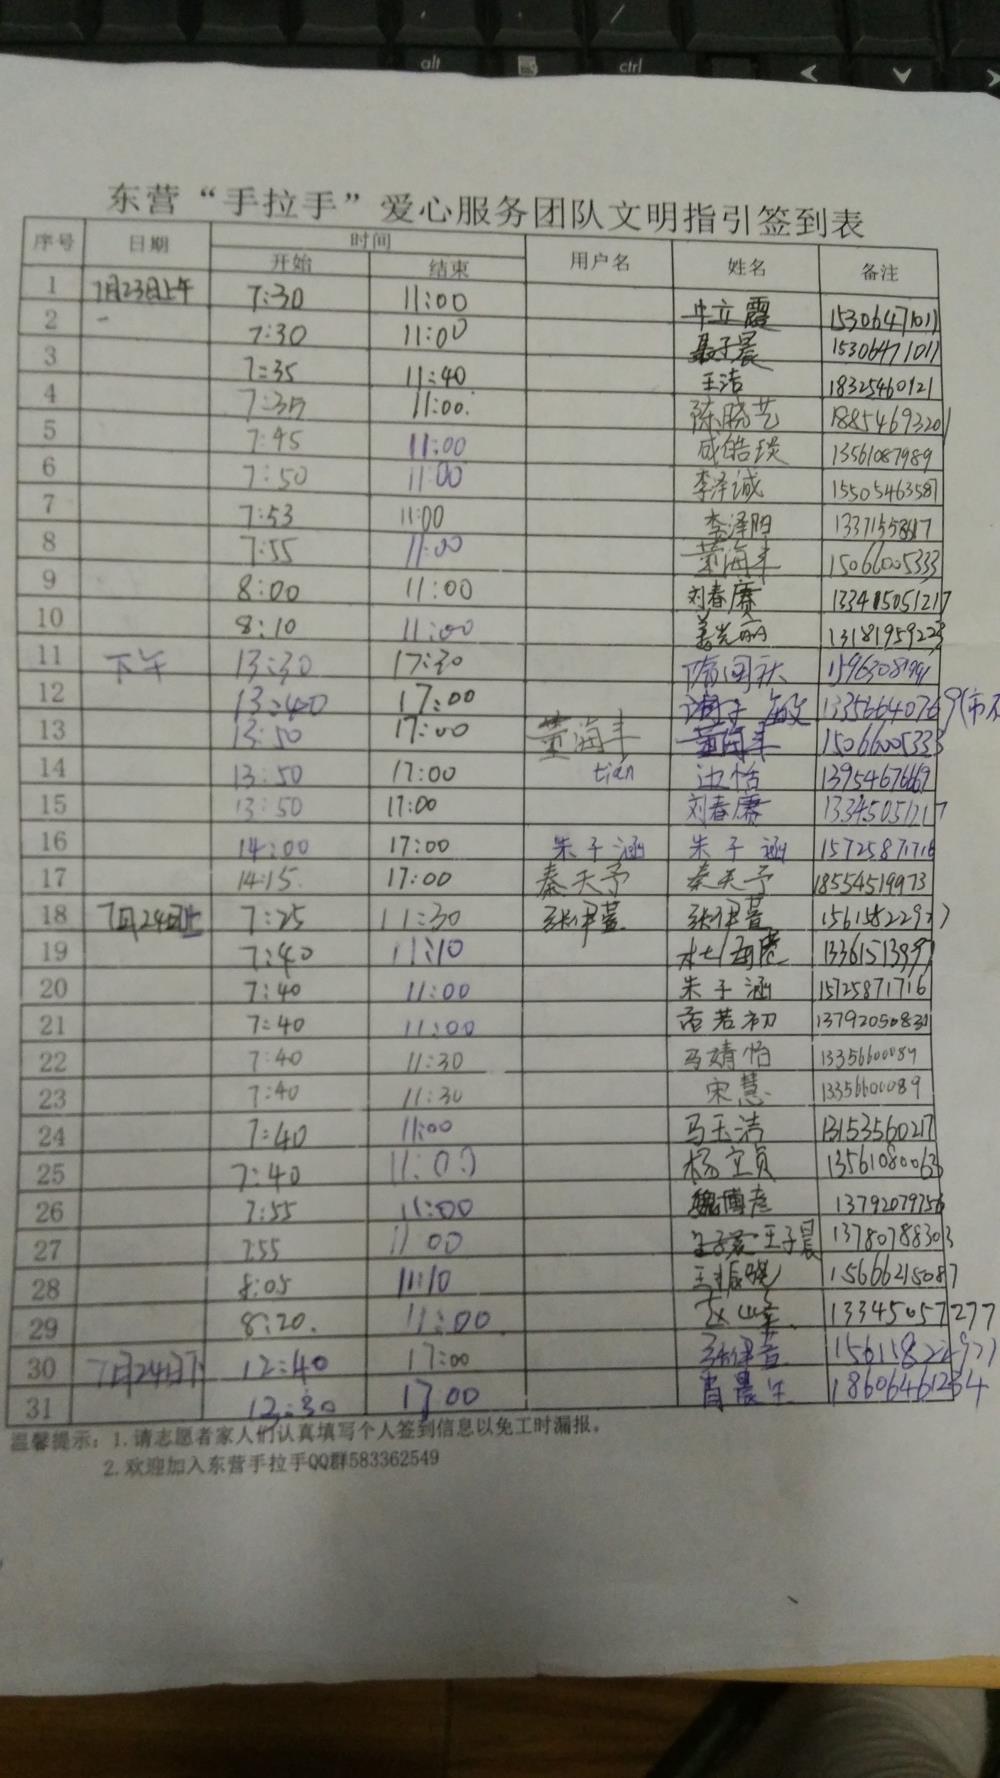 alt ctrl
东营“手拉手”爱心服务团队文明指引签到表
序号 日期 时间 用户名 姓名 备注
开始 结束
1 7月23日上午 7:30 11:00 立霞 15306471011
2 7:30 11:00 聂子晨 15306471011
3 7:35 11:40 王洁 18325460121
4 7:35 11:00. 陈晓艺 18854693201
5 7:45 11:00 成皓琰 13561087989
6 7:50 11:00 李泽诚 15505463587
7 7:53 11:00 李泽阳
8 7:55 11:00 董海丰 15066005333
9 8:00 11:00 刘春赛
10 8:10 11:00 姜光丽
11 下午 13:30 17:30 隋国秋
12 13:40 17:00 13356640769
13 13:50 17:00 董海丰 董海丰 15066005333
14 13:50 17:00 tian 边恬 13954676669
15 13:50 17:00 刘春赛 13345051217
16 14:00 17:00 朱子涵 朱子涵 15725871716
17 14:15. 17:00 秦天予 秦天予 18554519973
18 7月24日上 7:25 11:30 张伊萱 张伊萱 15615822927
19 7:40 11:10 杜海虎
20 7:40 11:00 朱子涵 15725871716
21 7:40 11:00 若初 13792050831
22 7:40 11:30 马婧怡 13356600089
23 7:40 11:30 宋慧 13356600089
24 7:40 11:00 马玉洁 13153560217
25 7:40 11:00 杨立贞 13561080063
26 7:55 11:00 魏博彦 13792079756
27 7:55 11 00 王子晨 13780788303
28 8:05 11:10 王振晓 15666215087
29 8:20. 11:00 13345057277
30 7月24日下 12:40 17:00 张伊萱
31 12:30 17 00 肖晨 18606461234
温馨提示：1.请志愿者家人们认真填写个人签到信息以免工时漏报。
2.欢迎加入东营手拉手QQ群583362549